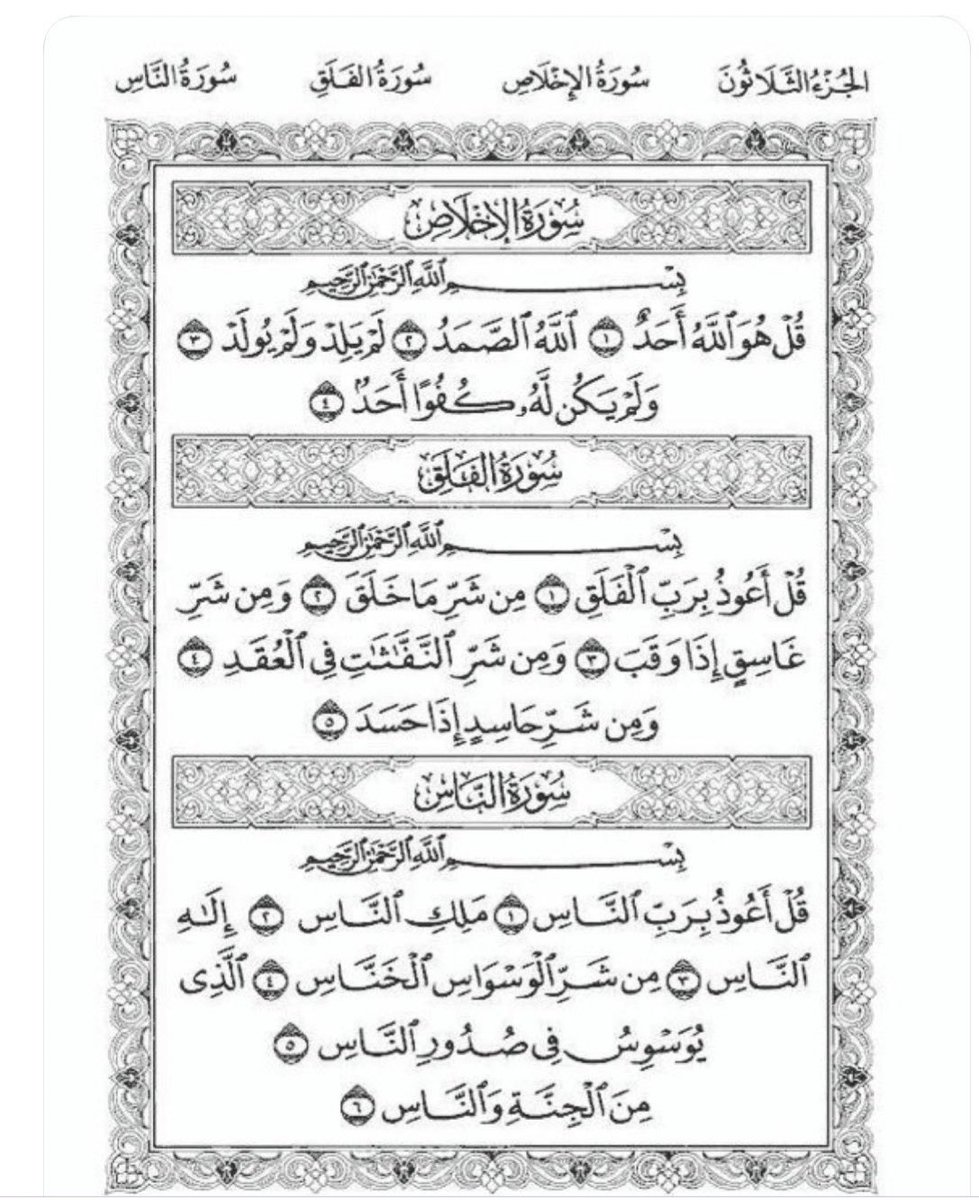 الجُزْءُ الثَّلَاثُونَ سُورَةُ الإِخْلَاصِ سُورَةُ الفَلَقِ سُورَةُ النَّاسِ
سُورَةُ الإِخْلَاصِ
بِسْمِ ٱللَّهِ ٱلرَّحْمَٰنِ ٱلرَّحِيمِ
قُلْ هُوَ ٱللَّهُ أَحَدٌ ١ ٱللَّهُ ٱلصَّمَدُ ٢ لَمْ يَلِدْ وَلَمْ يُولَدْ ٣
وَلَمْ يَكُن لَّهُۥ كُفُوًا أَحَدٌۢ ٤
سُورَةُ الفَلَقِ
بِسْمِ ٱللَّهِ ٱلرَّحْمَٰنِ ٱلرَّحِيمِ
قُلْ أَعُوذُ بِرَبِّ ٱلْفَلَقِ ١ مِن شَرِّ مَا خَلَقَ ٢ وَمِن شَرِّ
غَاسِقٍ إِذَا وَقَبَ ٣ وَمِن شَرِّ ٱلنَّفَّٰثَٰتِ فِى ٱلْعُقَدِ ٤
وَمِن شَرِّ حَاسِدٍ إِذَا حَسَدَ ٥
سُورَةُ النَّاسِ
بِسْمِ ٱللَّهِ ٱلرَّحْمَٰنِ ٱلرَّحِيمِ
قُلْ أَعُوذُ بِرَبِّ ٱلنَّاسِ ١ مَلِكِ ٱلنَّاسِ ٢ إِلَٰهِ
ٱلنَّاسِ ٣ مِن شَرِّ ٱلْوَسْوَاسِ ٱلْخَنَّاسِ ٤ ٱلَّذِى
يُوَسْوِسُ فِى صُدُورِ ٱلنَّاسِ ٥
مِنَ ٱلْجِنَّةِ وَٱلنَّاسِ ٦